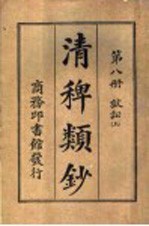 第八册 獄訟上
清稗類鈔
商務印書館發行